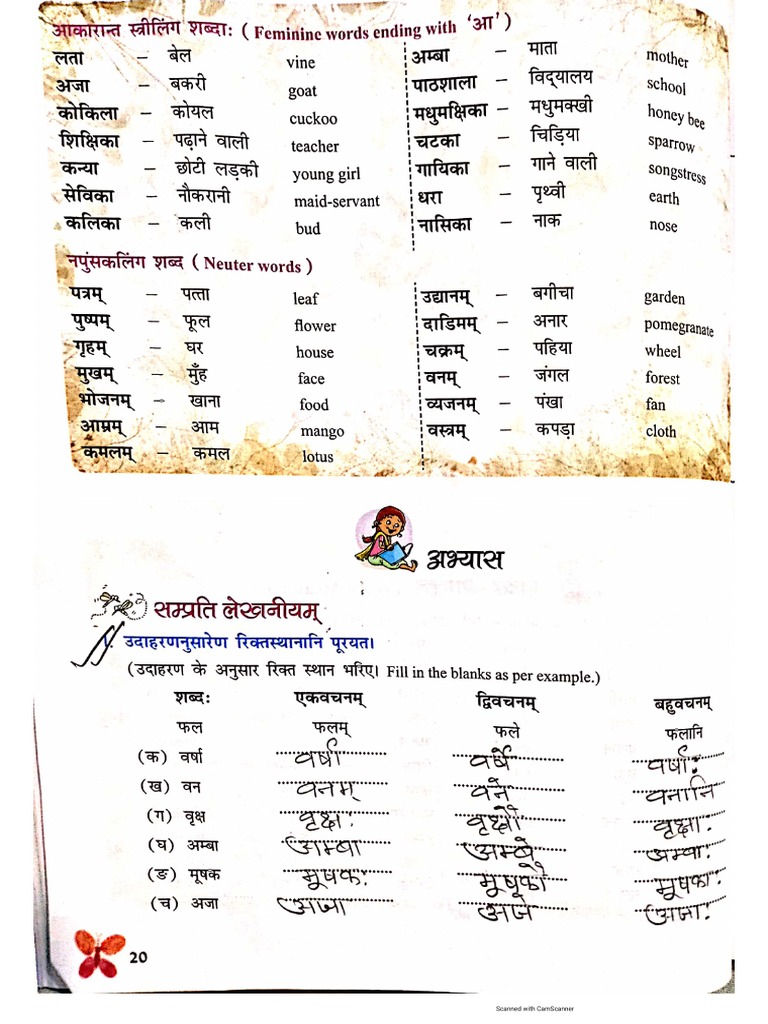 आकारान्त स्त्रीलिंग शब्दाः ( Feminine words ending with 'आ' )
लता – बेल vine
अजा – बकरी goat
कोकिला – कोयल cuckoo
शिक्षिका – पढ़ाने वाली teacher
कन्या – छोटी लड़की young girl
सेविका – नौकरानी maid-servant
कलिका – कली bud
अम्बा – माता mother
पाठशाला – विद्यालय school
मधुमक्षिका – मधुमक्खी honey bee
चटका – चिड़िया sparrow
गायिका – गाने वाली songstress
धरा – पृथ्वी earth
नासिका – नाक nose
नपुंसकलिंग शब्द ( Neuter words )
पत्रम् – पत्ता leaf
पुष्पम् – फूल flower
गृहम् – घर house
मुखम् – मुँह face
भोजनम् – खाना food
आम्रम् – आम mango
कमलम् – कमल lotus
उद्यानम् – बगीचा garden
दाडिमम् – अनार pomegranate
चक्रम् – पहिया wheel
वनम् – जंगल forest
व्यजनम् – पंखा fan
वस्त्रम् – कपड़ा cloth
अभ्यास
सम्प्रति लेखनीयम्
1. उदाहरणनुसारेण रिक्तस्थानानि पूरयत।
(उदाहरण के अनुसार रिक्त स्थान भरिए। Fill in the blanks as per example.)
शब्दः एकवचनम् द्विवचनम् बहुवचनम्
फल फलम् फले फलानि
(क) वर्षा वर्षा वर्षे वर्षाः
(ख) वन वनम् वने वनानि
(ग) वृक्ष वृक्षः वृक्षौ वृक्षाः
(घ) अम्बा अम्बा अम्बे अम्बाः
(ङ) मूषक मूषकः मूषकौ मूषकाः
(च) अजा अजा अजे अजाः
20
Scanned with CamScanner